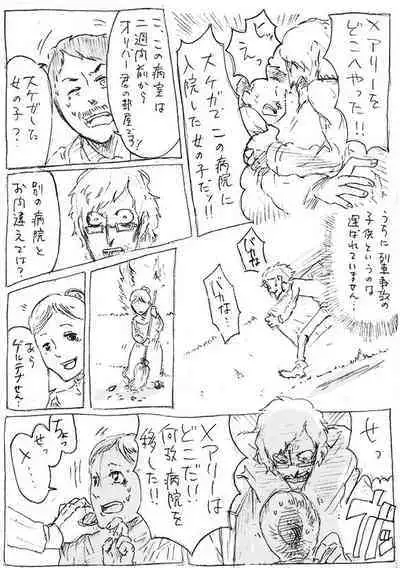 メアリーを
どこへやった!!
ヒッ
えっ
スケガでこの病院に
入院した女の子だッ!!
こ、この病室は
二週間前から
オリバー君の部屋です!
スケガした
女の子?
うちに列車事故の
子供というのは
運ばれていません…
別の病院と
お間違えでは?
バカな…
バカな!
あら
ゲルテナせん…
せっ
メアリーは
どこだ!!
何故病院を
移した!!
ちょっ
せっ
メ…